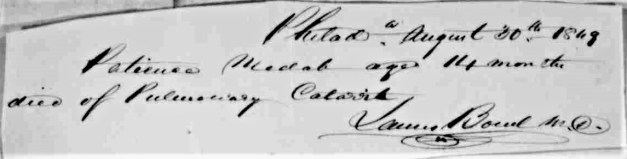 Philad.ᵃ August 30th 1849
Patience Medab age 14 months
died of Pulmonary Catarrh
James Bond M.D.